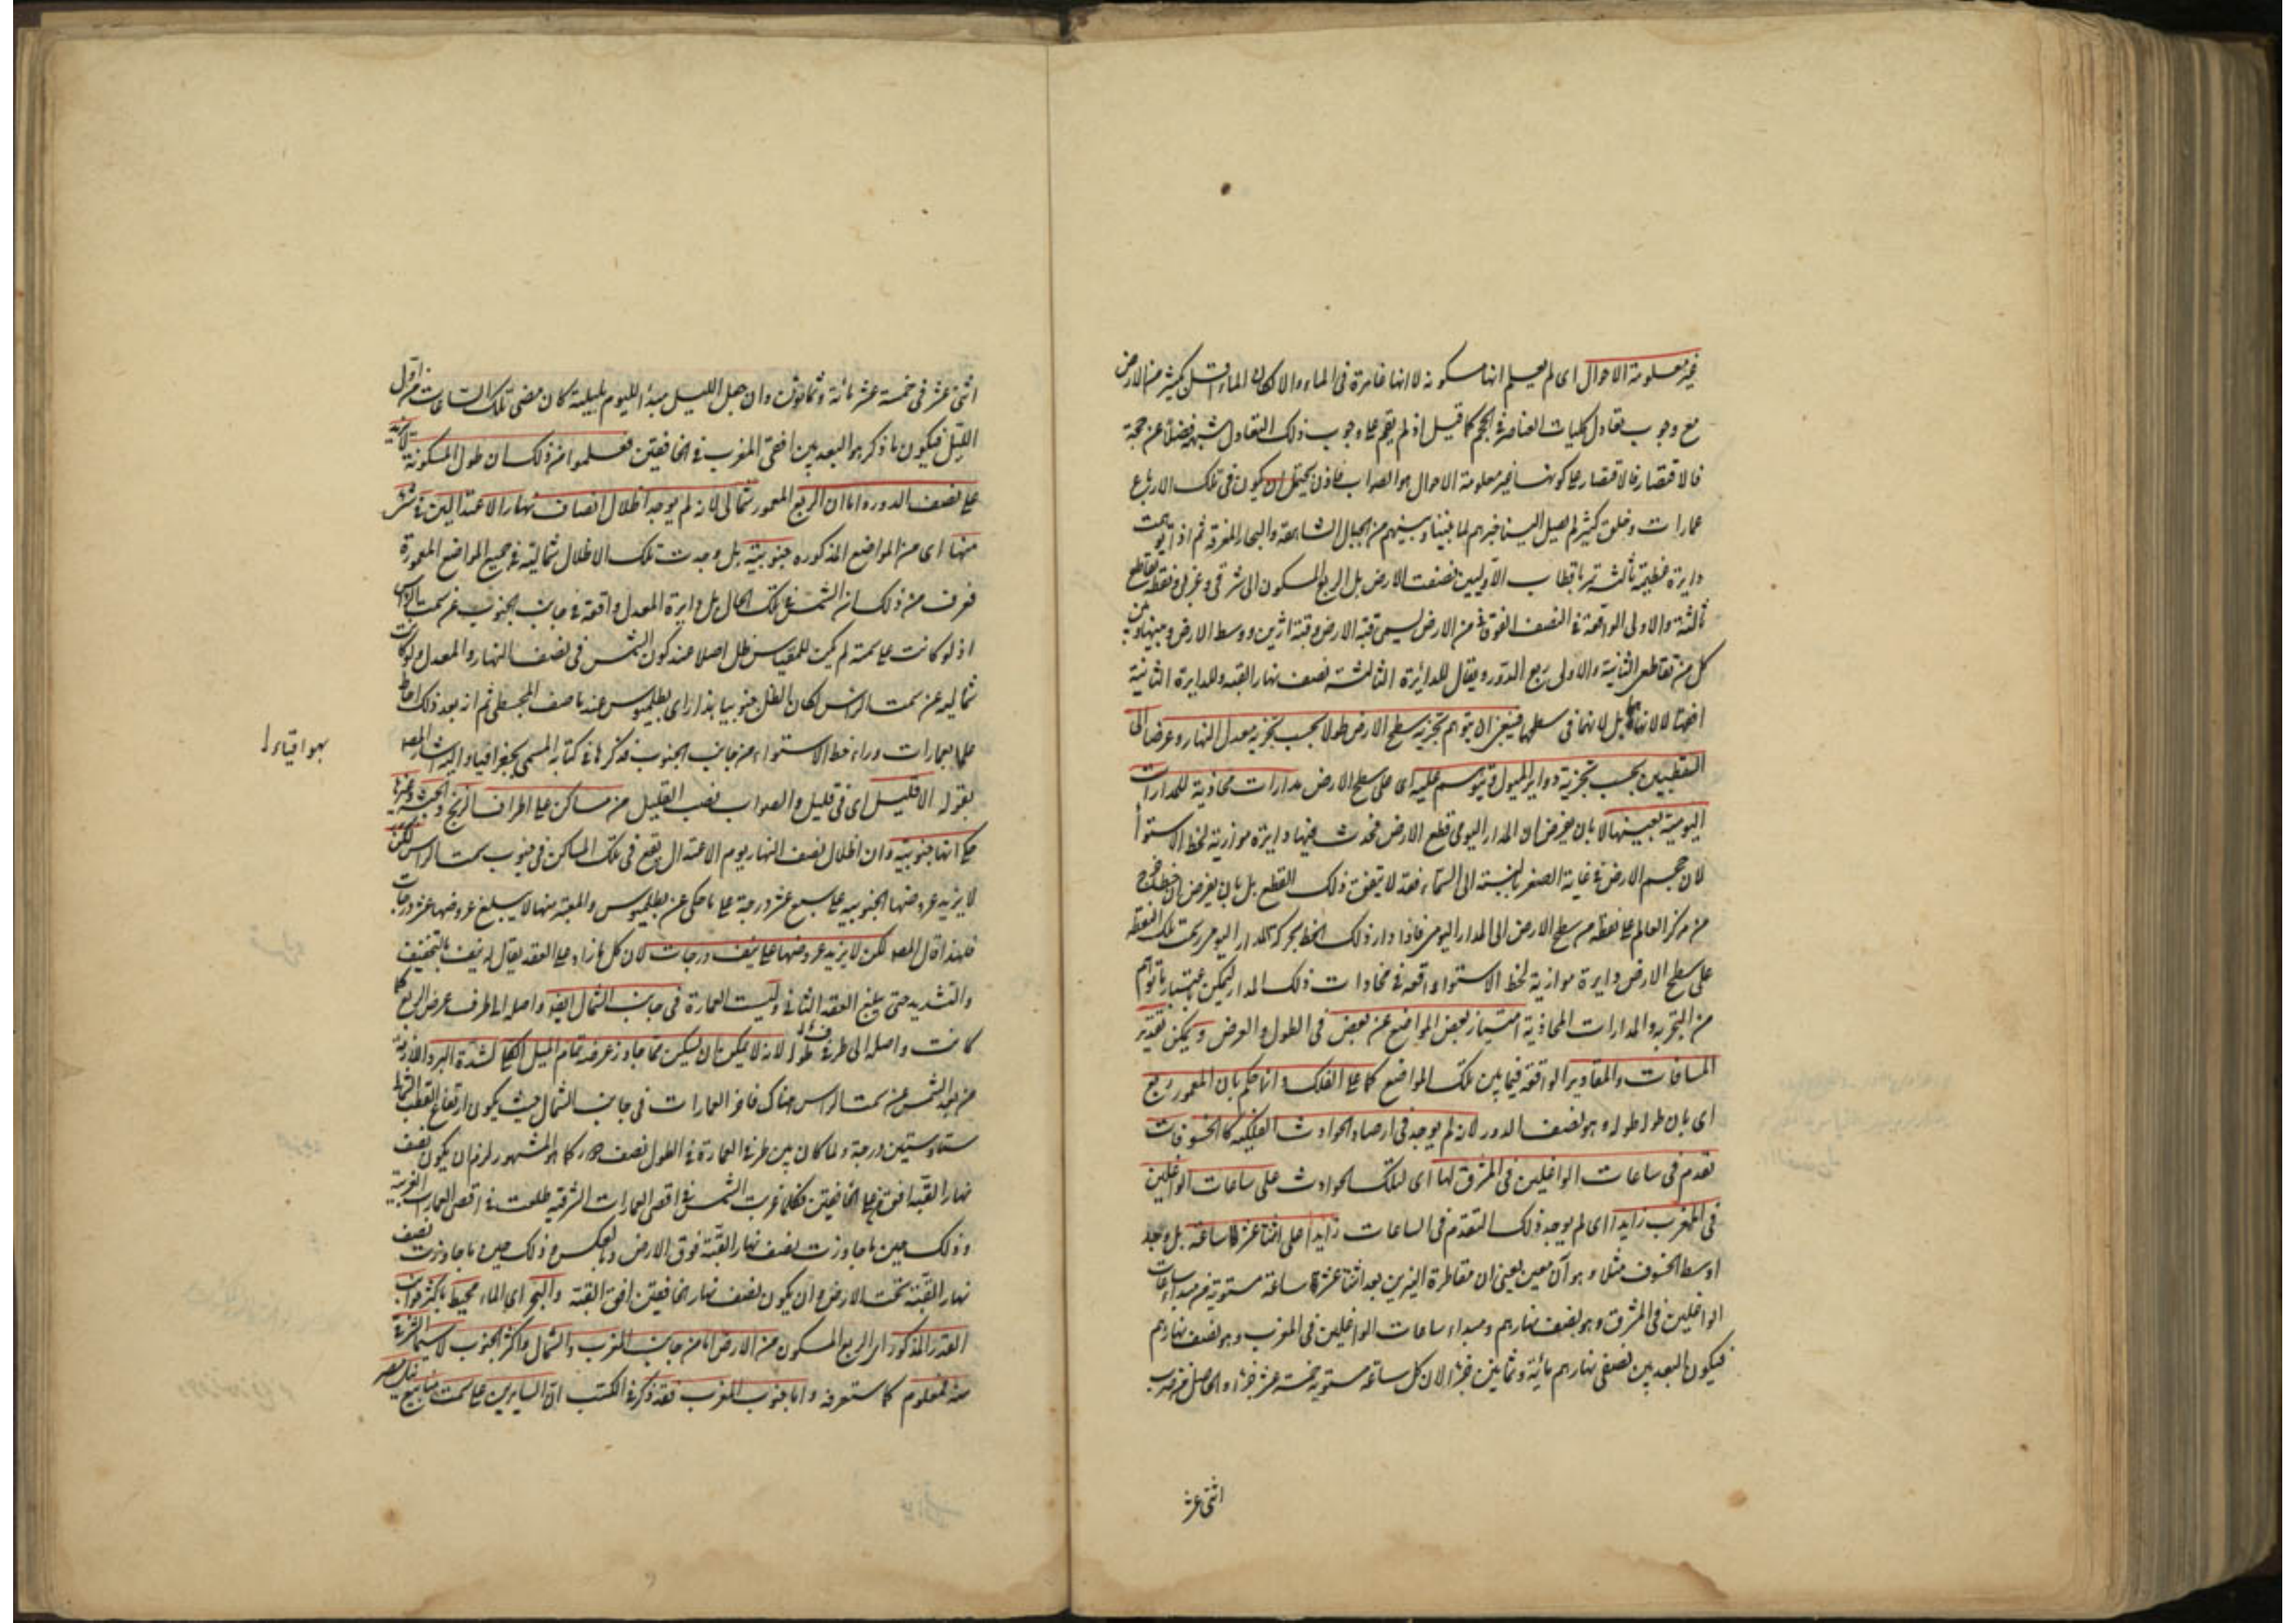 غير معلومة الاحوال اى لم يعلم انها مسكونة لا انها غامرة فى الماء والا لكان الماء كثير من الارض
مع وجوب تعادل كليات العناصر فى الحجم كما قيل اذ لم يقم على وجوب ذلك التعادل شبهة فضلا عن حجة
فالاقتصار على كونها غير معلومة الاحوال هو الصواب فاذن يحتمل ان يكون فى تلك الارباع
عمارات وخلق كثير لم يصل الينا خبرهم لما بيننا وبينهم من الجبال الشاهقة والبحار المغرقة ثم اذا توهمت
دايرة عظيمة ثالثة تمر باقطاب الاوليين نصفت الارض بل الربع المسكون الى شرقى وغربى ونقطة تقاطع
الثالثة والاولى الواقعة فى النصف الفوقانى من الارض يسمى قبة الارض وقبة ارين ووسط الارض وبينها وبين
كل من تقاطعى الثانية والاولى ربع الدور ويقال للدائرة الثالثة نصف نهار القبة وللدايرة الثانية
افقها لا لانها بل لانهما فى سطحهما فينبغى ان يتوهم تجزية سطح الارض طولا بحسب تجزية معدل النهار وعرضا الى
القطبين بحسب تجزية دواير الميول فيتوسم عليه اى على سطح الارض مدارات محاذية للمدارات
اليومية بعينها لا بان يفرض ان المدار اليومى قطع الارض فحدث فيها دايرة موازية لخط الاستوا
لان حجم الارض فى غاية الصغر بالنسبة الى السماء فقد لا يتفق ذلك القطع بل بان يفرض ان خطا خرج
من مركز العالم على نقطة من سطح الارض الى المدار اليومى فاذا دار ذلك الخط بحركة المدار اليومى رسمت تلك النقطة
على سطح الارض دايرة موازية لخط الاستواء واقعة فى محاذات ذلك المدار ليمكن باعتبار ما توهم
من التجزية والمدارات المحاذية امتياز بعض المواضع عن بعض فى الطول والعرض ويمكن تقدير
المسافات والمقادير الواقعة فيما بين تلك المواضع كما على الفلك وانما حكم بان المعمور ربع
اى بان طوله طول وهو نصف الدور لانه لم يوجد فى ارصاد الحوادث الفلكية كالخسوفات
تقدم فى ساعات الواغلين فى المشرق لها اى لتلك الحوادث على ساعات الواغلين
فى المغرب زايدا اى لم يوجد ذلك التقدم فى الساعات زايدا على اثنتا عشرة ساعة بل وجد
اوسط الخسوف مثلا وهو آن معين يعنى ان مقاطرة النيرين بعد اثنتا عشرة ساعة مستوية من مبدا ساعات
الواغلين فى المشرق وهو نصف نهارهم ومبداء ساعات الواغلين فى المغرب وهو نصف نهارهم
فيكون البعد بين نصفى نهارهم مائة وثمانين جزءا لان كل ساعة مستوية خمسة عشر جزءا والحاصل من ضرب
اثنى عشر
اثنى عشر فى خمسة عشر مائة وثمانون وان جعل الليل مبدأ لليوم بليلته كان مضى تلك الساعات من اول
الليل فيكون ما ذكر هو البعد بين افقى المغرب فى الخافقين فعلموا من ذلك ان طول المسكونة لا يزيد
على نصف الدور واما ان الربع المعمور شمالى لانه لم يوجد اظلال انصاف نهار الاعتدالين فى شئ
منها اى من المواضع المذكورة جنوبية بل وجدت تلك الاظلال شمالية فى جميع المواضع المعمورة
فعرف من ذلك ان الشمس فى تلك الحال بل دايرة المعدل واقعة فى جانب الجنوب عن سمت الراس
اذ لو كانت على سمته لم يكن للمقياس ظل اصلا عند كون الشمس فى نصف النهار والمعدل ولو كانت
شمالية عن سمت الراس لكان الظل جنوبيا هذا راى بطلميوس عند ما صنف المجسطى ثم انه بعد ذلك احاط
علما بعمارات وراء خط الاستواء من جانب الجنوب فذكرها فى كتابه المسمى بجغرافيا واليه اشار المص
بقوله الا قليل اى فى قليل والصواب نصب القليل من مساكن على اطراف الزنج والحبشة وغيرها
على انها جنوبية وان اظلال نصف النهار يوم الاعتدال يقع فى تلك المساكن فى جنوب سمت الراس لكن
لا يزيد عروضها الجنوبية على سبع عشر درجة على ما حكى عن بطلميوس والمعتبر منها لا يبلغ عروضها عشر درجات
فلهذا قال المص لكن لا يزيد عروضها على نيف ودرجات لان كل ما زاد على العقد يقال له نيف بالتخفيف
والتشديد حتى يبلغ العقد الثانى وليست العمارة فى جانب الشمال ايضا واصلة الى طرف عرض الربع كما
كانت واصلة الى طرفى طوله لانه لا يمكن ان يسكن فيما جاوز عرضه تمام الميل الكلى لشدة البرد اللازمة
من بعد الشمس عن سمت الراس هناك فاخر العمارات فى جانب الشمال حيث يكون ارتفاع القطب الشمالى
ستا وستين درجة ولما كان بين طرفى العمارة فى الطول نصف دور كما هو المشهور لزم ان يكون نصف
نهار القبة افق الخافقين فكلما غربت الشمس فى اقصى العمارات الشرقية طلعت فى اقصى العمارات الغربية
وذلك حين ما جاوزت نصف نهار القبة فوق الارض وبالعكس وذلك حين ما جاوزت نصف
نهار القبة تحت الارض وان يكون نصف نهار الخافقين افق القبة والبحر اى الماء محيط باكثر جوانب
القدر المذكور اى الربع المسكون من الارض اما من جانب المغرب والشمال واكثر الجنوب لا سيما الشرقى
منه فمعلوم كما ستعرفه واما جنوب المغرب فقد ذكر فى الكتب ان السايرين على سمت منابيع نيل مصر
بهوا قياء